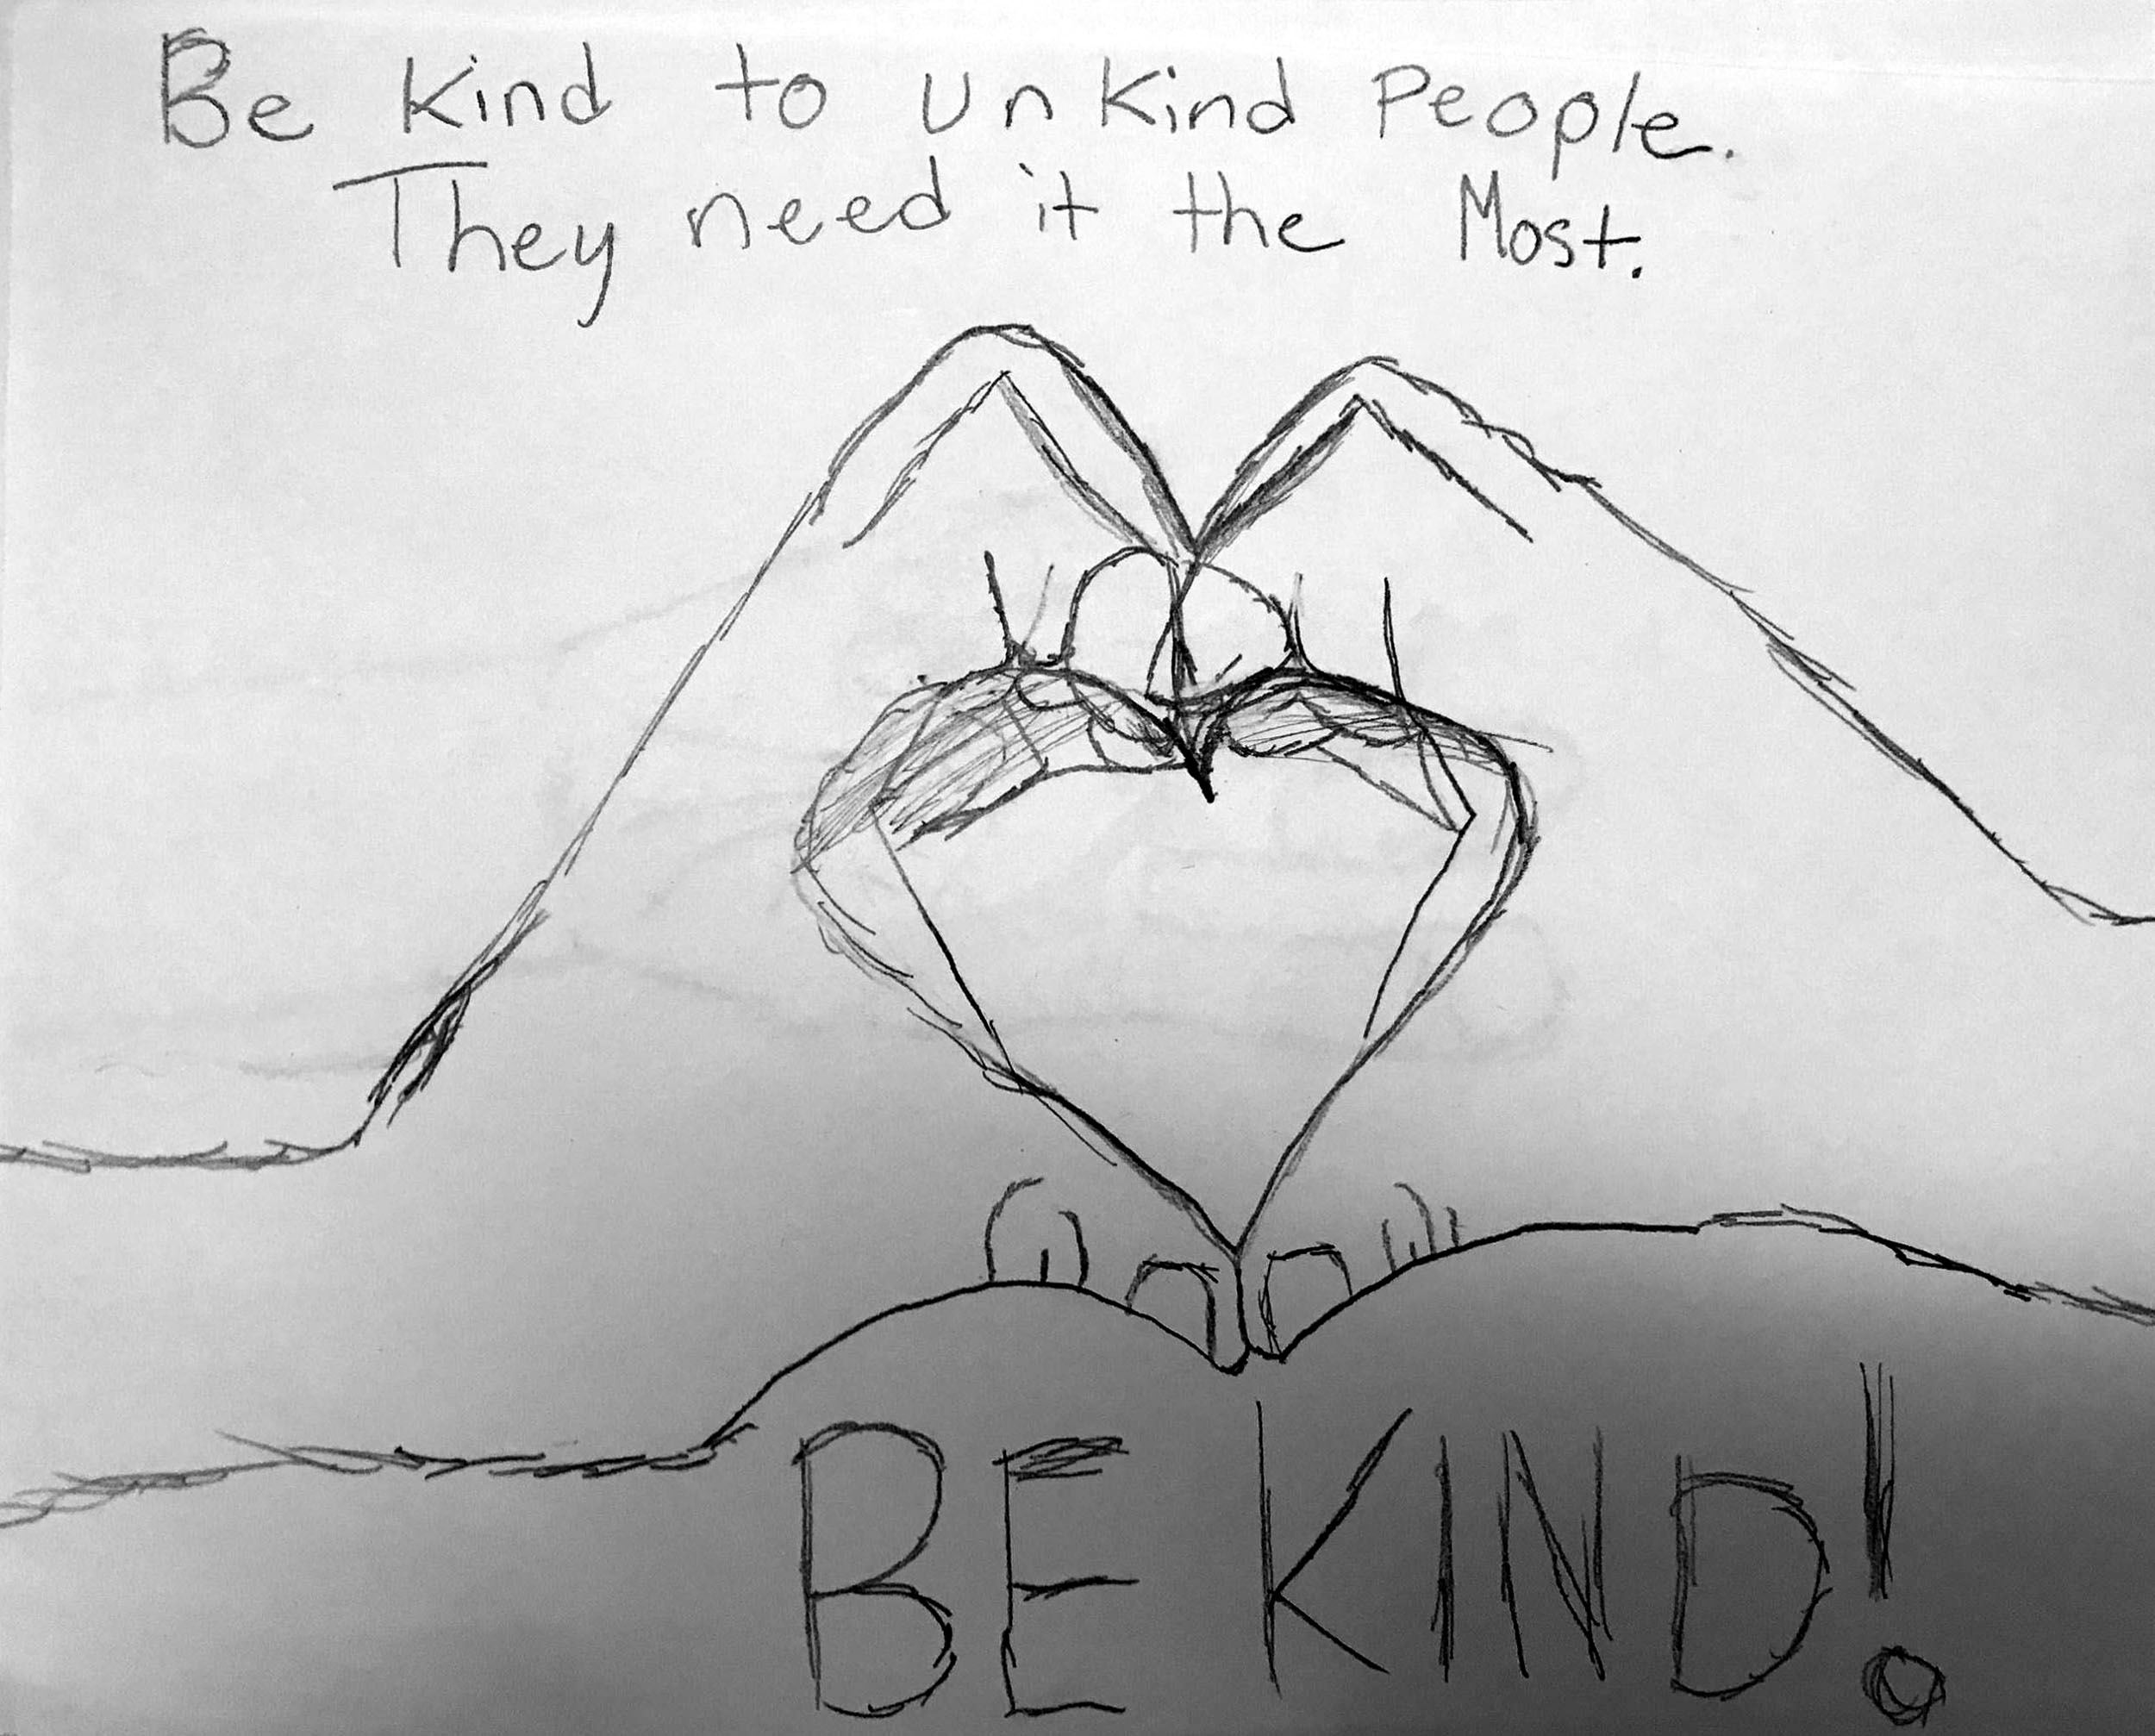 Be Kind to unkind People.
They need it the Most.
BE KIND!